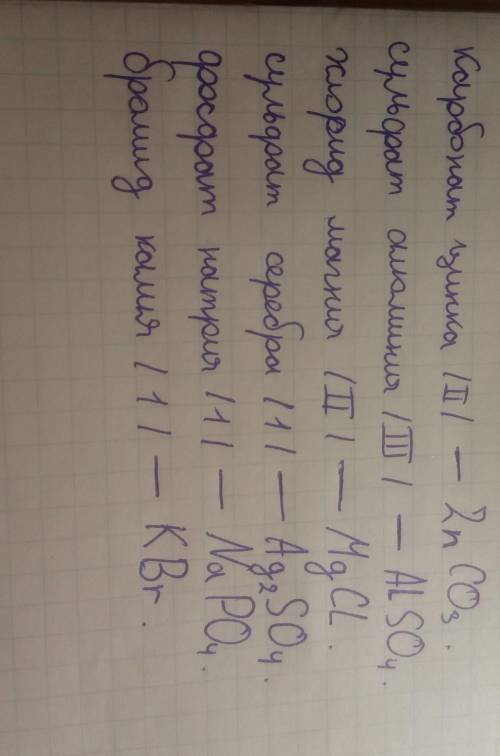 Карбонат цинка /II/ — ZnCO₃.
сульфат алюминия /III/ — AlSO₄.
хлорид магния /II/ — MgCl.
сульфат серебра /1/ — Ag₂SO₄.
фосфат натрия /1/ — NaPO₄.
бромид калия /1/ — KBr.